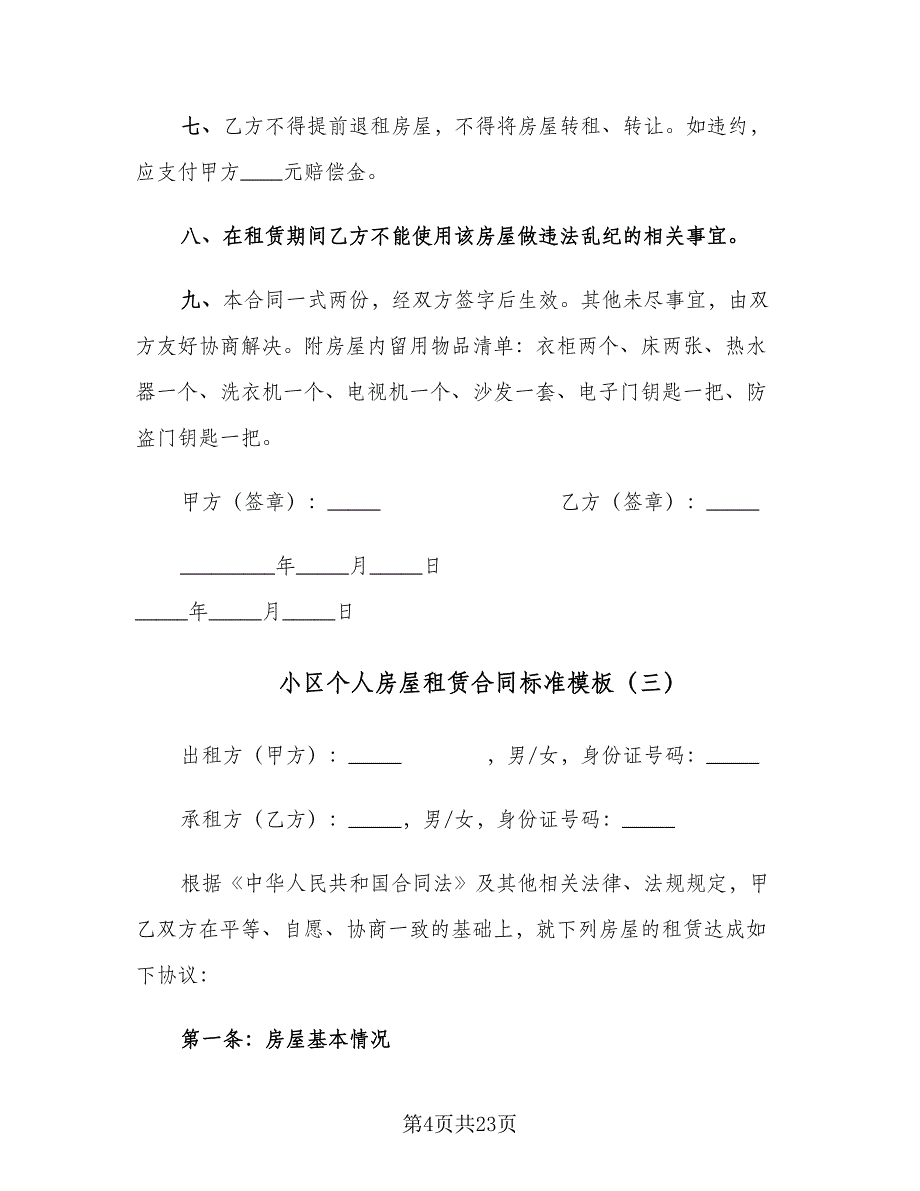 七、乙方不得提前退租房屋，不得将房屋转租、转让。如违约，
应支付甲方____元赔偿金。
八、在租赁期间乙方不能使用该房屋做违法乱纪的相关事宜。
九、本合同一式两份，经双方签字后生效。其他未尽事宜，由双
方友好协商解决。附房屋内留用物品清单：衣柜两个、床两张、热水
器一个、洗衣机一个、电视机一个、沙发一套、电子门钥匙一把、防
盗门钥匙一把。
甲方（签章）：_____ 乙方（签章）：_____
_________年_____月_____日
_____年_____月_____日
小区个人房屋租赁合同标准模板（三）
出租方（甲方）：_____ ，男/女，身份证号码：_____
承租方（乙方）：_____，男/女，身份证号码：_____
根据《中华人民共和国合同法》及其他相关法律、法规规定，甲
乙双方在平等、自愿、协商一致的基础上，就下列房屋的租赁达成如
下协议：
第一条：房屋基本情况
第4页共23页